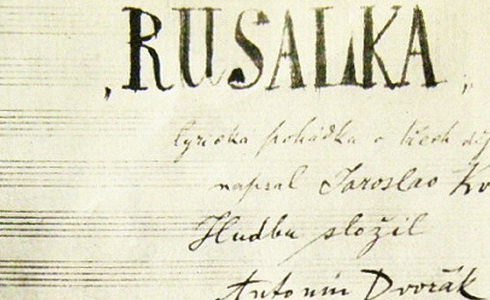 „RUSALKA"
lyrická pohádka o třech děj
napsal Jaroslav Kv
Hudbu složil
Antonín Dvořák